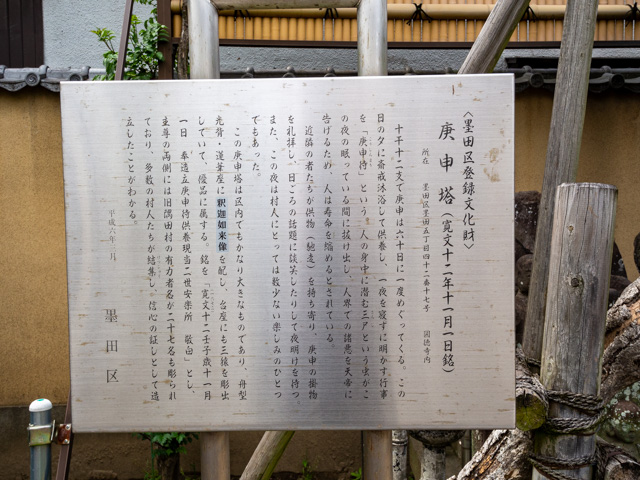 〈墨田区登録文化財〉
庚申塔（寛文十二年十一月一日銘）
所在 墨田区墨田五丁目四十二番十七号 円徳寺内
十干十二支で庚申は六十日に一度めぐってくる。この
日の夕に斎戒沐浴して供養し、一夜を寝ずに明かす行事
を「庚申待」という。人の身中に潜む三尸という虫がこ
の夜の眠っている間に抜け出し、人界での諸悪を天帝に
告げるため、人は寿命を縮めるとされている。
近隣の者たちが供物（馳走）を持ち寄り、庚申の掛物
を礼拝し、日ごろの話題に談笑したりして夜明けを待つ。
また、この夜は村人にとっては数少ない楽しみのひとつ
でもあった。
この庚申塔は区内でもかなり大きなものであり、舟型
光背・蓮華座に釈迦如来像を配し、台座にも三猿を彫出
していて、優品に属する。銘を「寛文十二壬子歳十一月
一日 奉造立庚申待供養現当二世安楽所 敬白」とし、
主尊の両側には旧隅田村の有力者名が二十七名も彫られ
ており、多数の村人たちが結集し、信心の証しとして造
立したことがわかる。
平成六年三月
墨田区